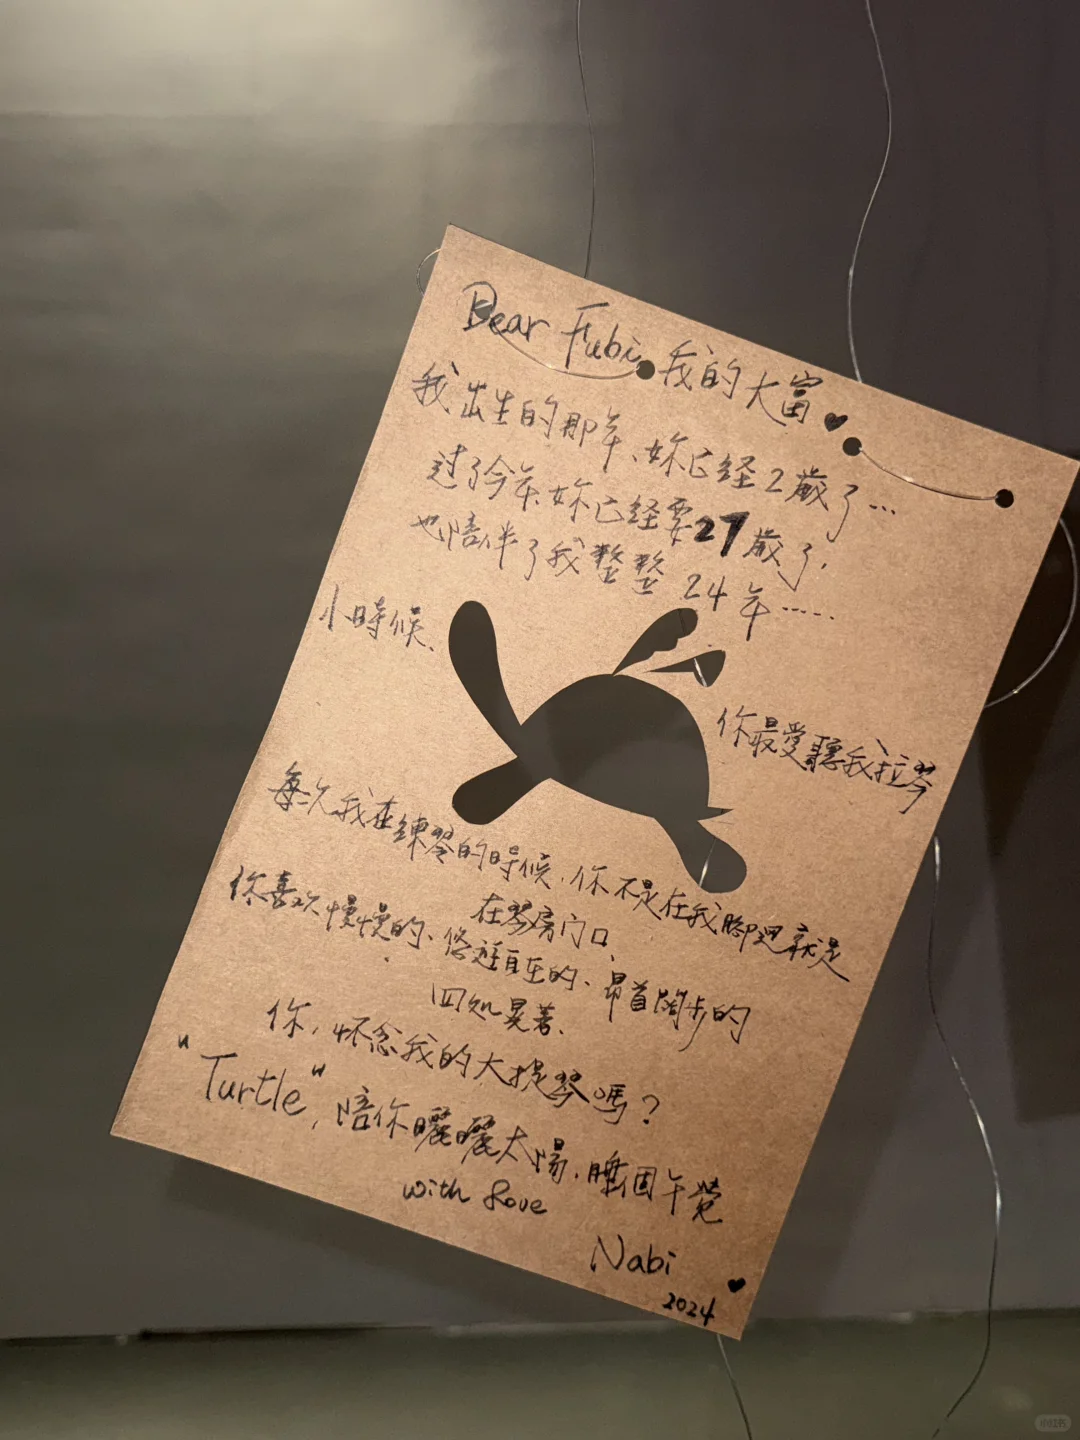 Dear Fubi 我的大富♥
我出生的那年、妳已经2歲了…
过了今年、妳已经要27歲了,
也陪伴了我整整24年……
小時候、
你最爱聽我拉琴
每次我在練琴的時候,你不是在我腳邊就是
在琴房门口,
你喜欢慢慢的、悠遊自在的、昂首闊步的
四处晃著、
你,怀念我的大提琴嗎?
"Turtle",陪你曬曬太陽,睡個午覺
with Love
Nabi
♥
2024
小红书